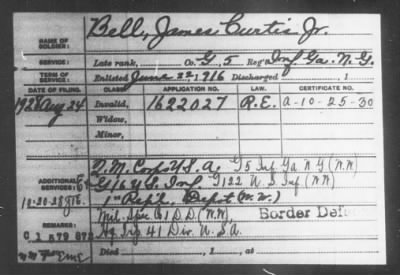 NAME OF SOLDIER: Bell, James Curtis Jr.
SERVICE: Late rank, Co. G, 5 Reg't Inf Ga. N. G.
TERM OF SERVICE: Enlisted June 22, 1916 Discharged , 1
DATE OF FILING. CLASS. APPLICATION NO. LAW. CERTIFICATE NO.
1928 Aug 24 Invalid, 1622027 R.E. A-10-25-30
Widow,
Minor,
Q.M. Corps U.S.A. G 5 Inf Ga N G (W.W.)
ADDITIONAL SERVICES: G 116 U.S. Inf. G 122 U.S. Inf (W W)
10-20-28 1" Repl. Depot (W.W.)
REMARKS: Mil. Spec. (W.W.) Border Def
C 1 579 872 Hq 41 Div. U.S.A.
Died , 1 , at